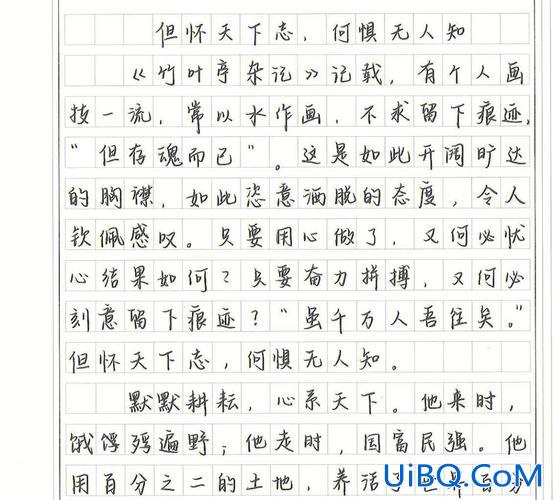 但怀天下志，何惧无人知
《竹叶亭杂记》记载，有个人画
技一流，常以水作画，不求留下痕迹，
“但存魂而已”。这是如此开阔旷达
的胸襟，如此恣意洒脱的态度，令人
钦佩感叹。只要用心做了，又何必忧
心结果如何？只要奋力拼搏，又何必
刻意留下痕迹？“虽千万人吾往矣。”
但怀天下志，何惧无人知。
默默耕耘，心系天下。他来时，
饿殍遍野；他走时，国富民强。他
用百分之二的土地，养活
UiBQ.CoM